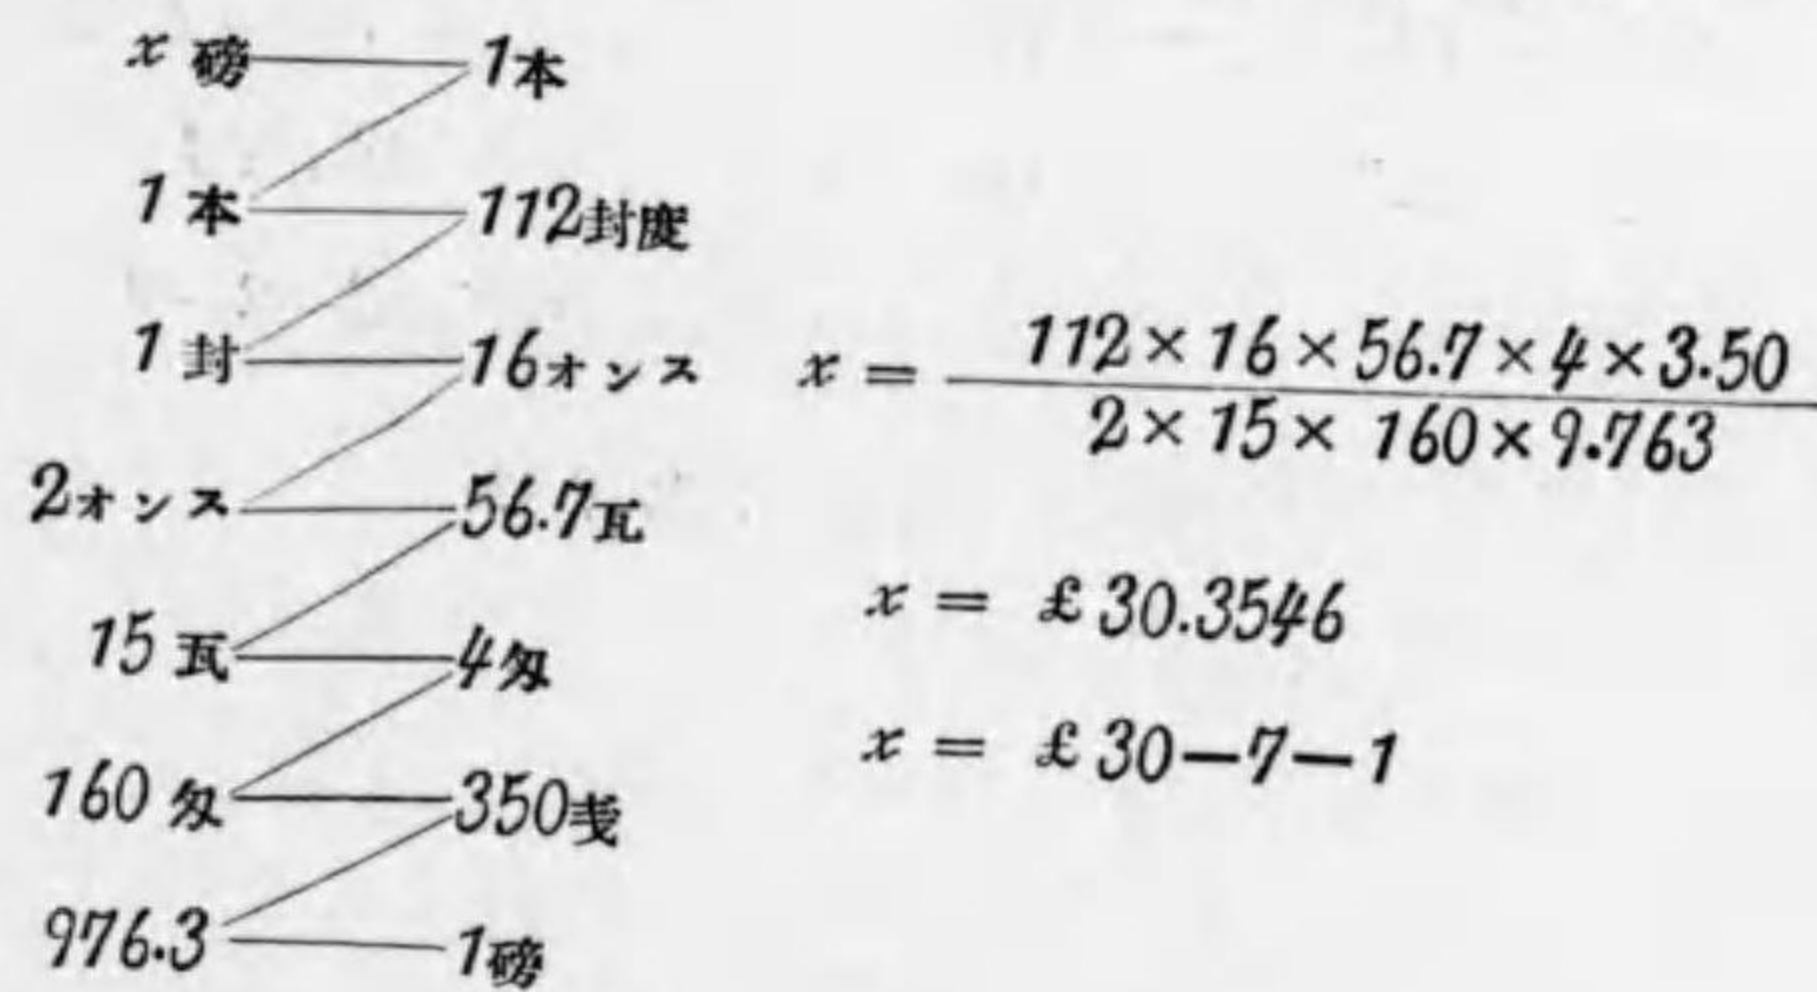 x 磅 1本
1 本 112封度
1 封 16オンス
2オンス 56.7瓦
15 瓦 4匁
160 匁 350戔
976.3 1磅
x = 112×16×56.7×4×3.50
2×15×160×9.763
x = £30.3546
x = £30—7—1